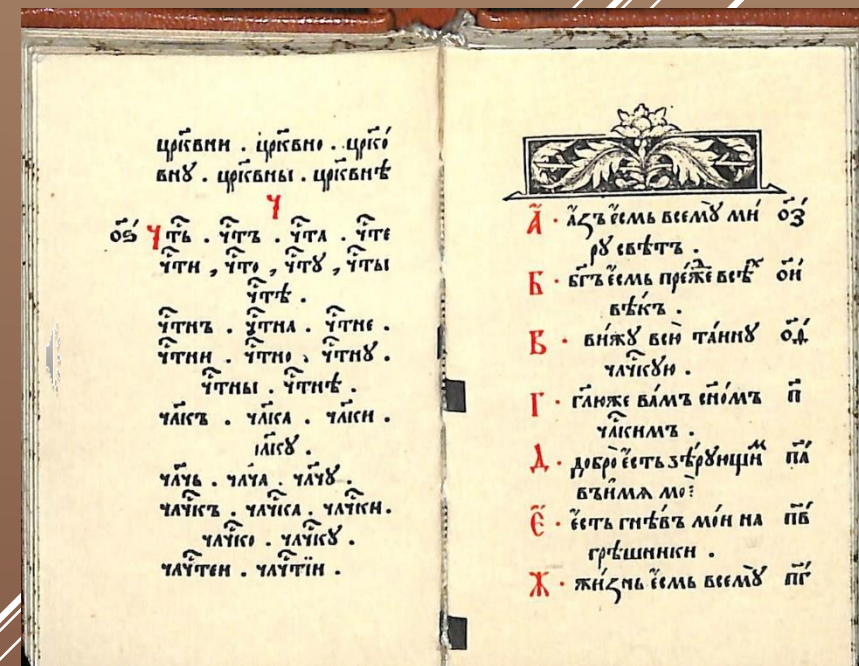 цр҃квни . цр҃квно . цр҃ко́
внꙋ . цр҃квны . цр҃квнѣ
Ч
ѻ҃ѕ Чт҃ь . чт҃ъ . чт҃а . чт҃е
чт҃и , чт҃о , чт҃ꙋ , чт҃ы
чт҃ѣ .
чт҃нъ . чт҃на . чт҃не .
чт҃ни . чт҃но , чт҃нꙋ .
чт҃ны . чт҃нѣ .
чл҃къ . чл҃ка . чл҃ки .
чл҃кꙋ .
чл҃чь . чл҃ча . чл҃чꙋ .
чл҃чкъ . чл҃чка . чл҃чки .
чл҃чко . чл҃чкꙋ .
чл҃чтеи . чл҃чтїи .
А҃ · а҆́зъ є҆́смь всемꙋ̀ ми́ ѻ҃з
рꙋ свѣ́тъ .
Б · бг҃ъ є҆́смь пре́жⷣе всѣⷯ ѻ҃и
вѣ́къ .
В · ви́жꙋ всю̀ та́йнꙋ ѻ҃ѳ
чл҃чкꙋю .
Г · гл҃юже ва́мъ сн҃о́мъ п҃
чл҃кимъ .
Д · добро̀ є҆́сть вѣ́рꙋющиⷨ п҃а
въ и҆́мѧ моѐ
Є҃ · є҆́сть гнѣ́въ мо́й на п҃в
грѣ́шники .
Ж · жи́знь є҆́смь всемꙋ̀ п҃г